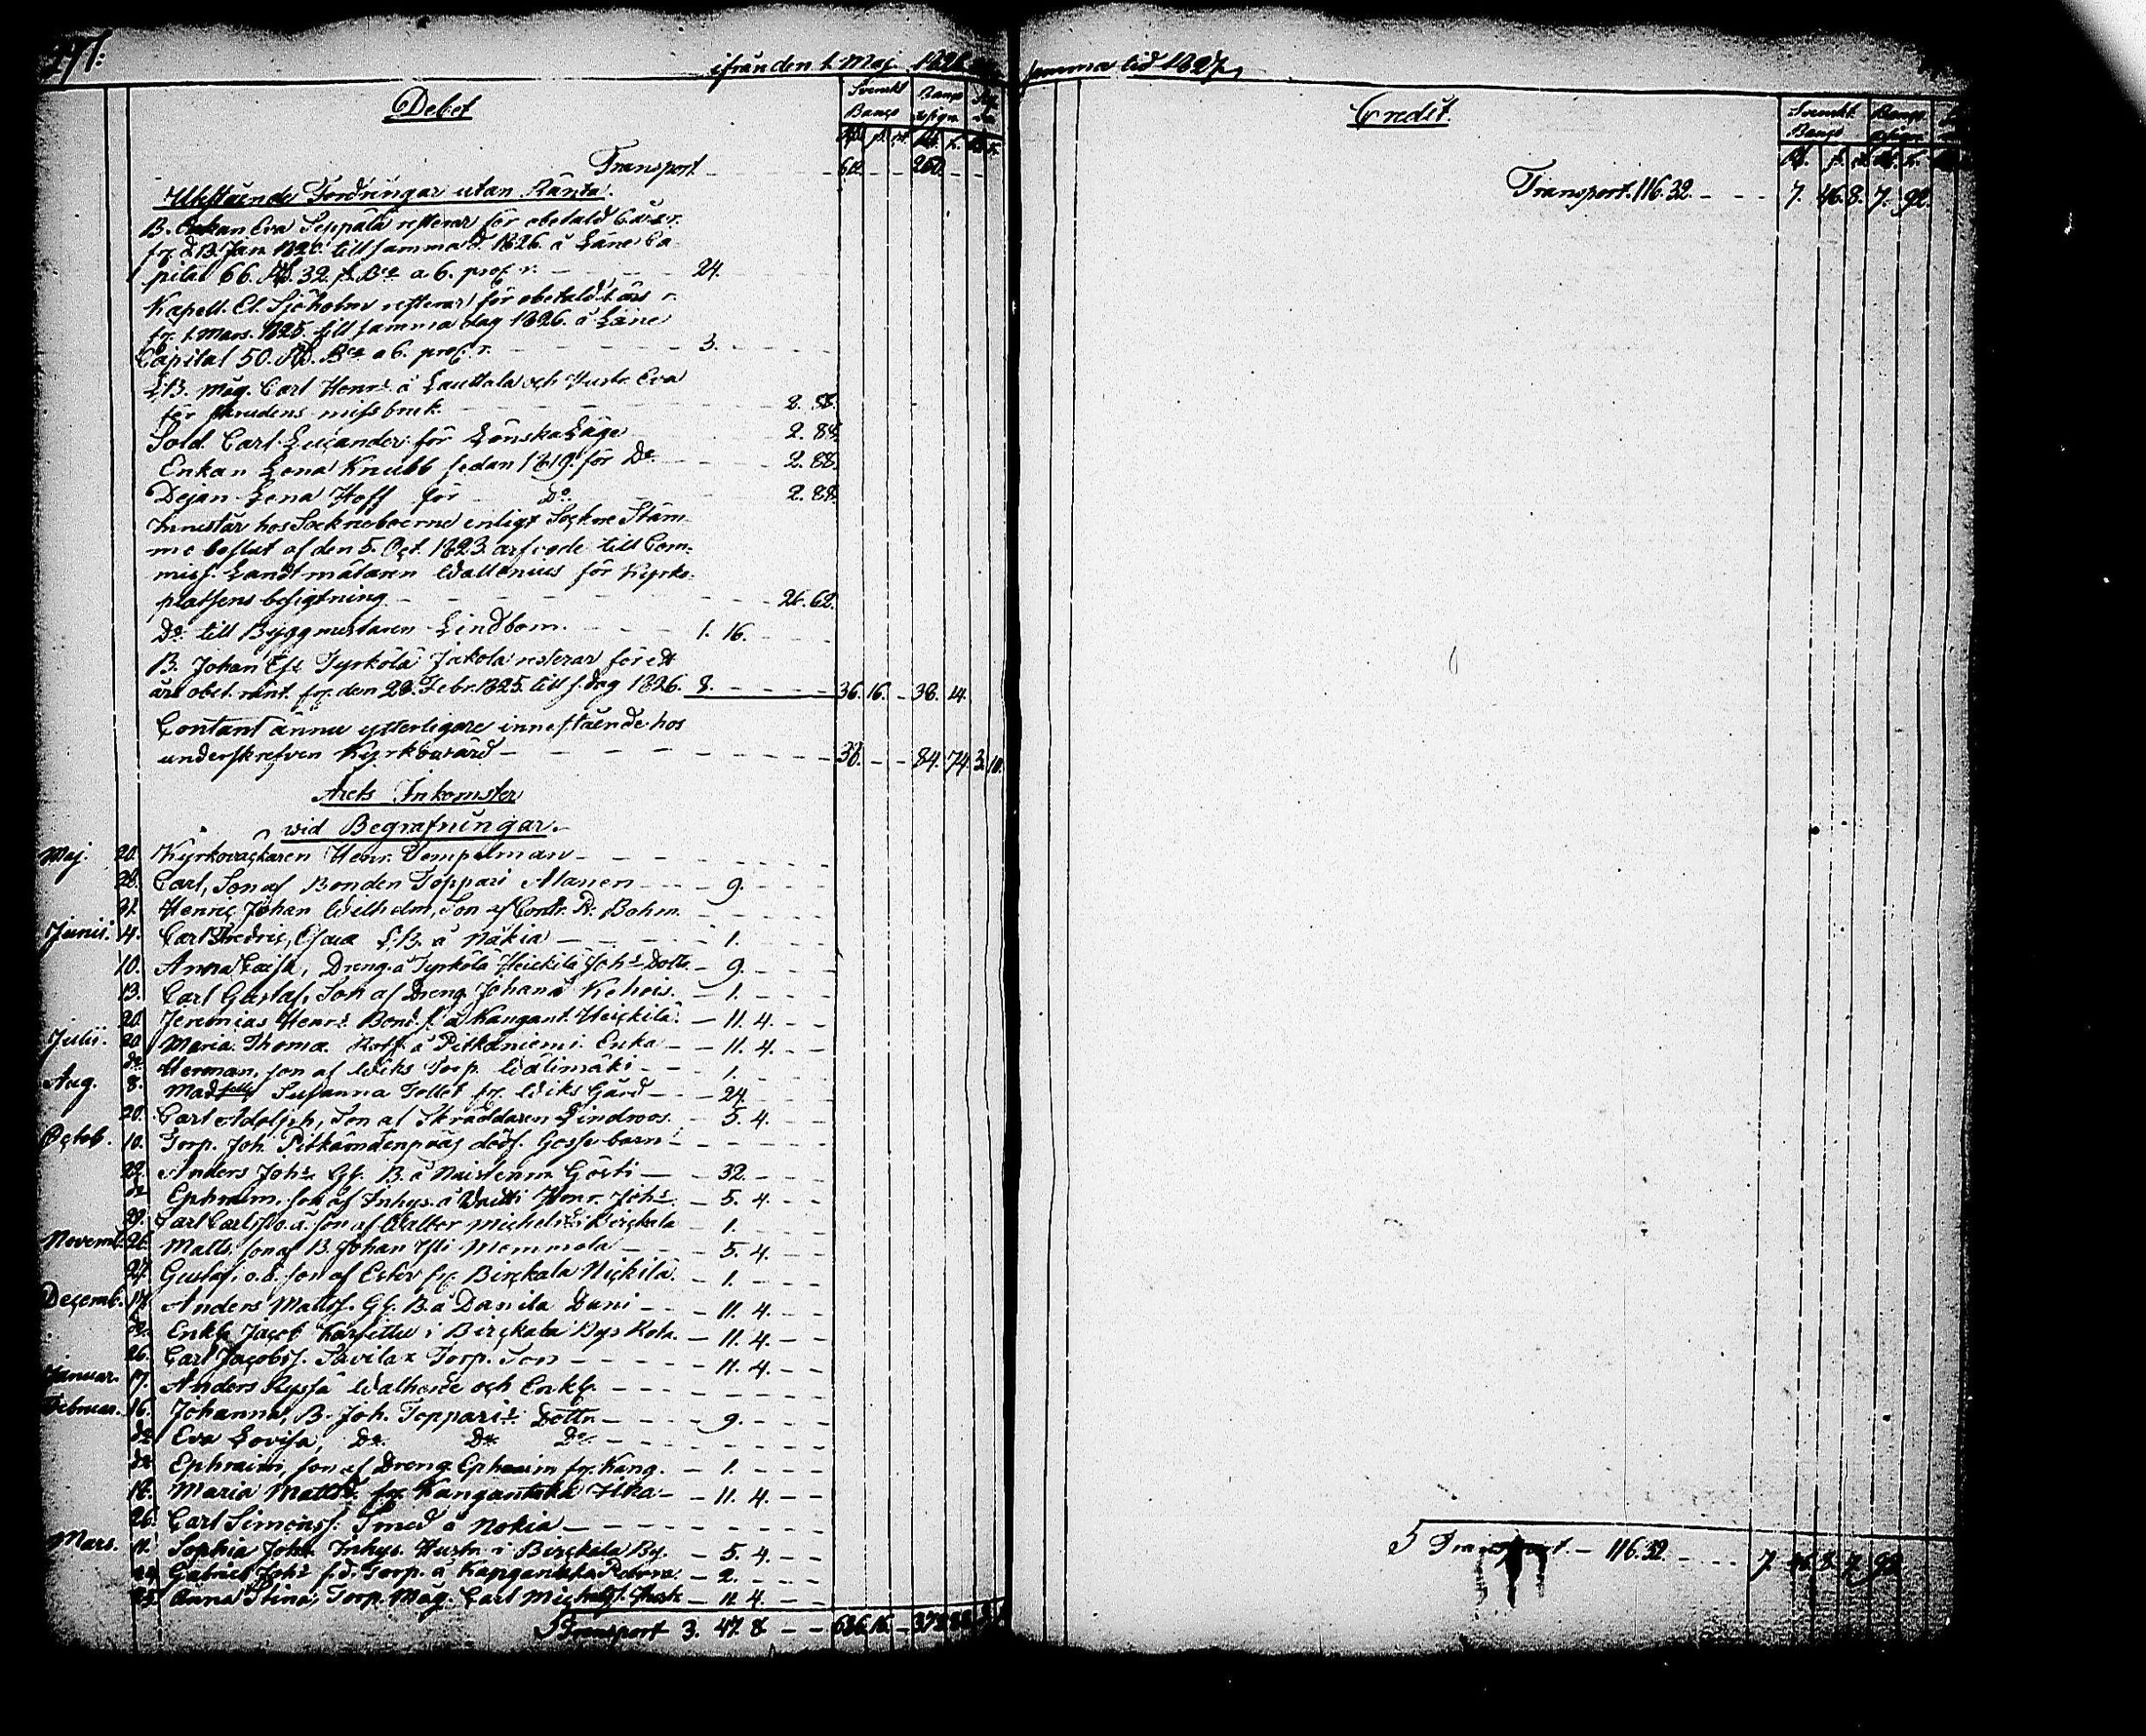 ifrån den 1. Maj 1826
samma tid 1827.
Debet
Svenskt Banco
Banco Assign.
Transport 60. 260.
Utestående Fordringar utan Ränta.
B. Enkan Eva Seppälä resterar för obetald 6 års r.
fr. d. 13. Jan. 1820. till samma d. 1826. å Låne Ca-
pital 66. Rd. 32. s. Bco a 6. proc. r. 24.
Kapell. El. Sjöholm resterar för obetald 1. års r.
fr. 1. Mars. 1825. till samma dag 1826. å Låne
Capital 50. Rd. Bco a 6. proc. r. 3.
Måg. Carl Henrs. å Lauttala och Hustr. Eva
för skrudens missbruk 2. 88.
Sold. Carl Lucander för Lönskaläge 2. 88.
Enkan Lena Knubb sedan 1819. för Do. 2. 88.
Dejan Lena Hoff för Do. 2. 88.
Innestår hos Sockneboerne enligt Sockne Stäm-
mo beslut af den 5. Oct. 1823. arfvode till Com-
miss. Landtmätaren Wallenius för Kyrko-
platsens besigtning 26. 62.
Do. till Byggmästaren Lindbom. 1. 16.
B. Johan Tyrkölä Jakola resterar för ett
års obet. ränt. fr. den 28. Febr. 1825. till s. dag 1826. 8. 36. 16. - 38. 14.
Contant ännu ytterligare innestående hos
underskrefven Kyrkovärd 38. 84. 74. 3. 10.
Årets Inkomster
wid Begrafningar.
Maj. 20. Kyrkovaktaren Henr. Tempelman
28. Carl, Son af Bonden Toppari Alanen 9.
31. Henric Johan Wilhelm, Son af Contr. Bohm.
Junii. 4. Carl Fredric, å Nakia 1.
10. Anna Caisa, Dreng. å Tyrkölä Heickilä Johs. Dottr. 9.
13. Carl Gustaf, Son af Dreng Johan å Kehois. 1.
20. Jeremias Henrs. Bond. s. å Kangant. Heickilä. 11. 4.
Julii. 20. Maria Thomæ å Pitkäniemi Enka 11. 4.
do. Herman, son af Wiks Torp. Wälimäki 1.
Aug. 8. Madselle Susanna Tollet fr. Wiks Gård 24.
20. Carl Adolph, Son af Skräddaren Lindroos. 5. 4.
Octob. 10. Torp. Joh. döds. Gossebarn
22. Anders Johs. Gl. B. å Naistenm. Gösti 32.
do. Ephraim, son af Inhys. å Henr. Johs. 5. 4.
29. Carl Carlss. o.ä. son af Walbor Michelsd. i Birckala 1.
Novemb. 26. Matts, son af B. Johan Memmola 5. 4.
27. Gustaf, o.ä. son af Ester fr. Birckala Nickilä. 1.
Decemb. 17. Anders Mattss. Gl. B. å Danila Dani 11. 4.
Enkl. Jacob i Birckala Bys Rote. 11. 4.
26. Carl Jacobss. Savilax Torp. Son 11. 4.
Januar. 17. Anders och Enkl.
Februar. 16. Johanna, B. Joh. Topparis Dottr. 9.
do. Eva Lovisa, Do. Do. Do.
do. Ephraim, son af Dreng Ephraim fr. Kang. 1.
18. Maria Mattsd. fr. Kangantaka 11. 4.
26. Carl Simonss. Smed å Nokia
Mars. 11. Sophia Johs. Inhys. Hustr. i Birckala By. 5. 4.
Gabriel Johs. f.d. Torp. å 2.
25. Anna Stina, Torp. Måg. Carl 11. 4.
Transport 3. 47. 8. 636. 16.
Credit.
Svenskt Banco
Banco Assign.
Transport. 116. 32. 7. 46. 8. 7. 92.
Transport 116. 32. 7. 46. 8. 7. 92.